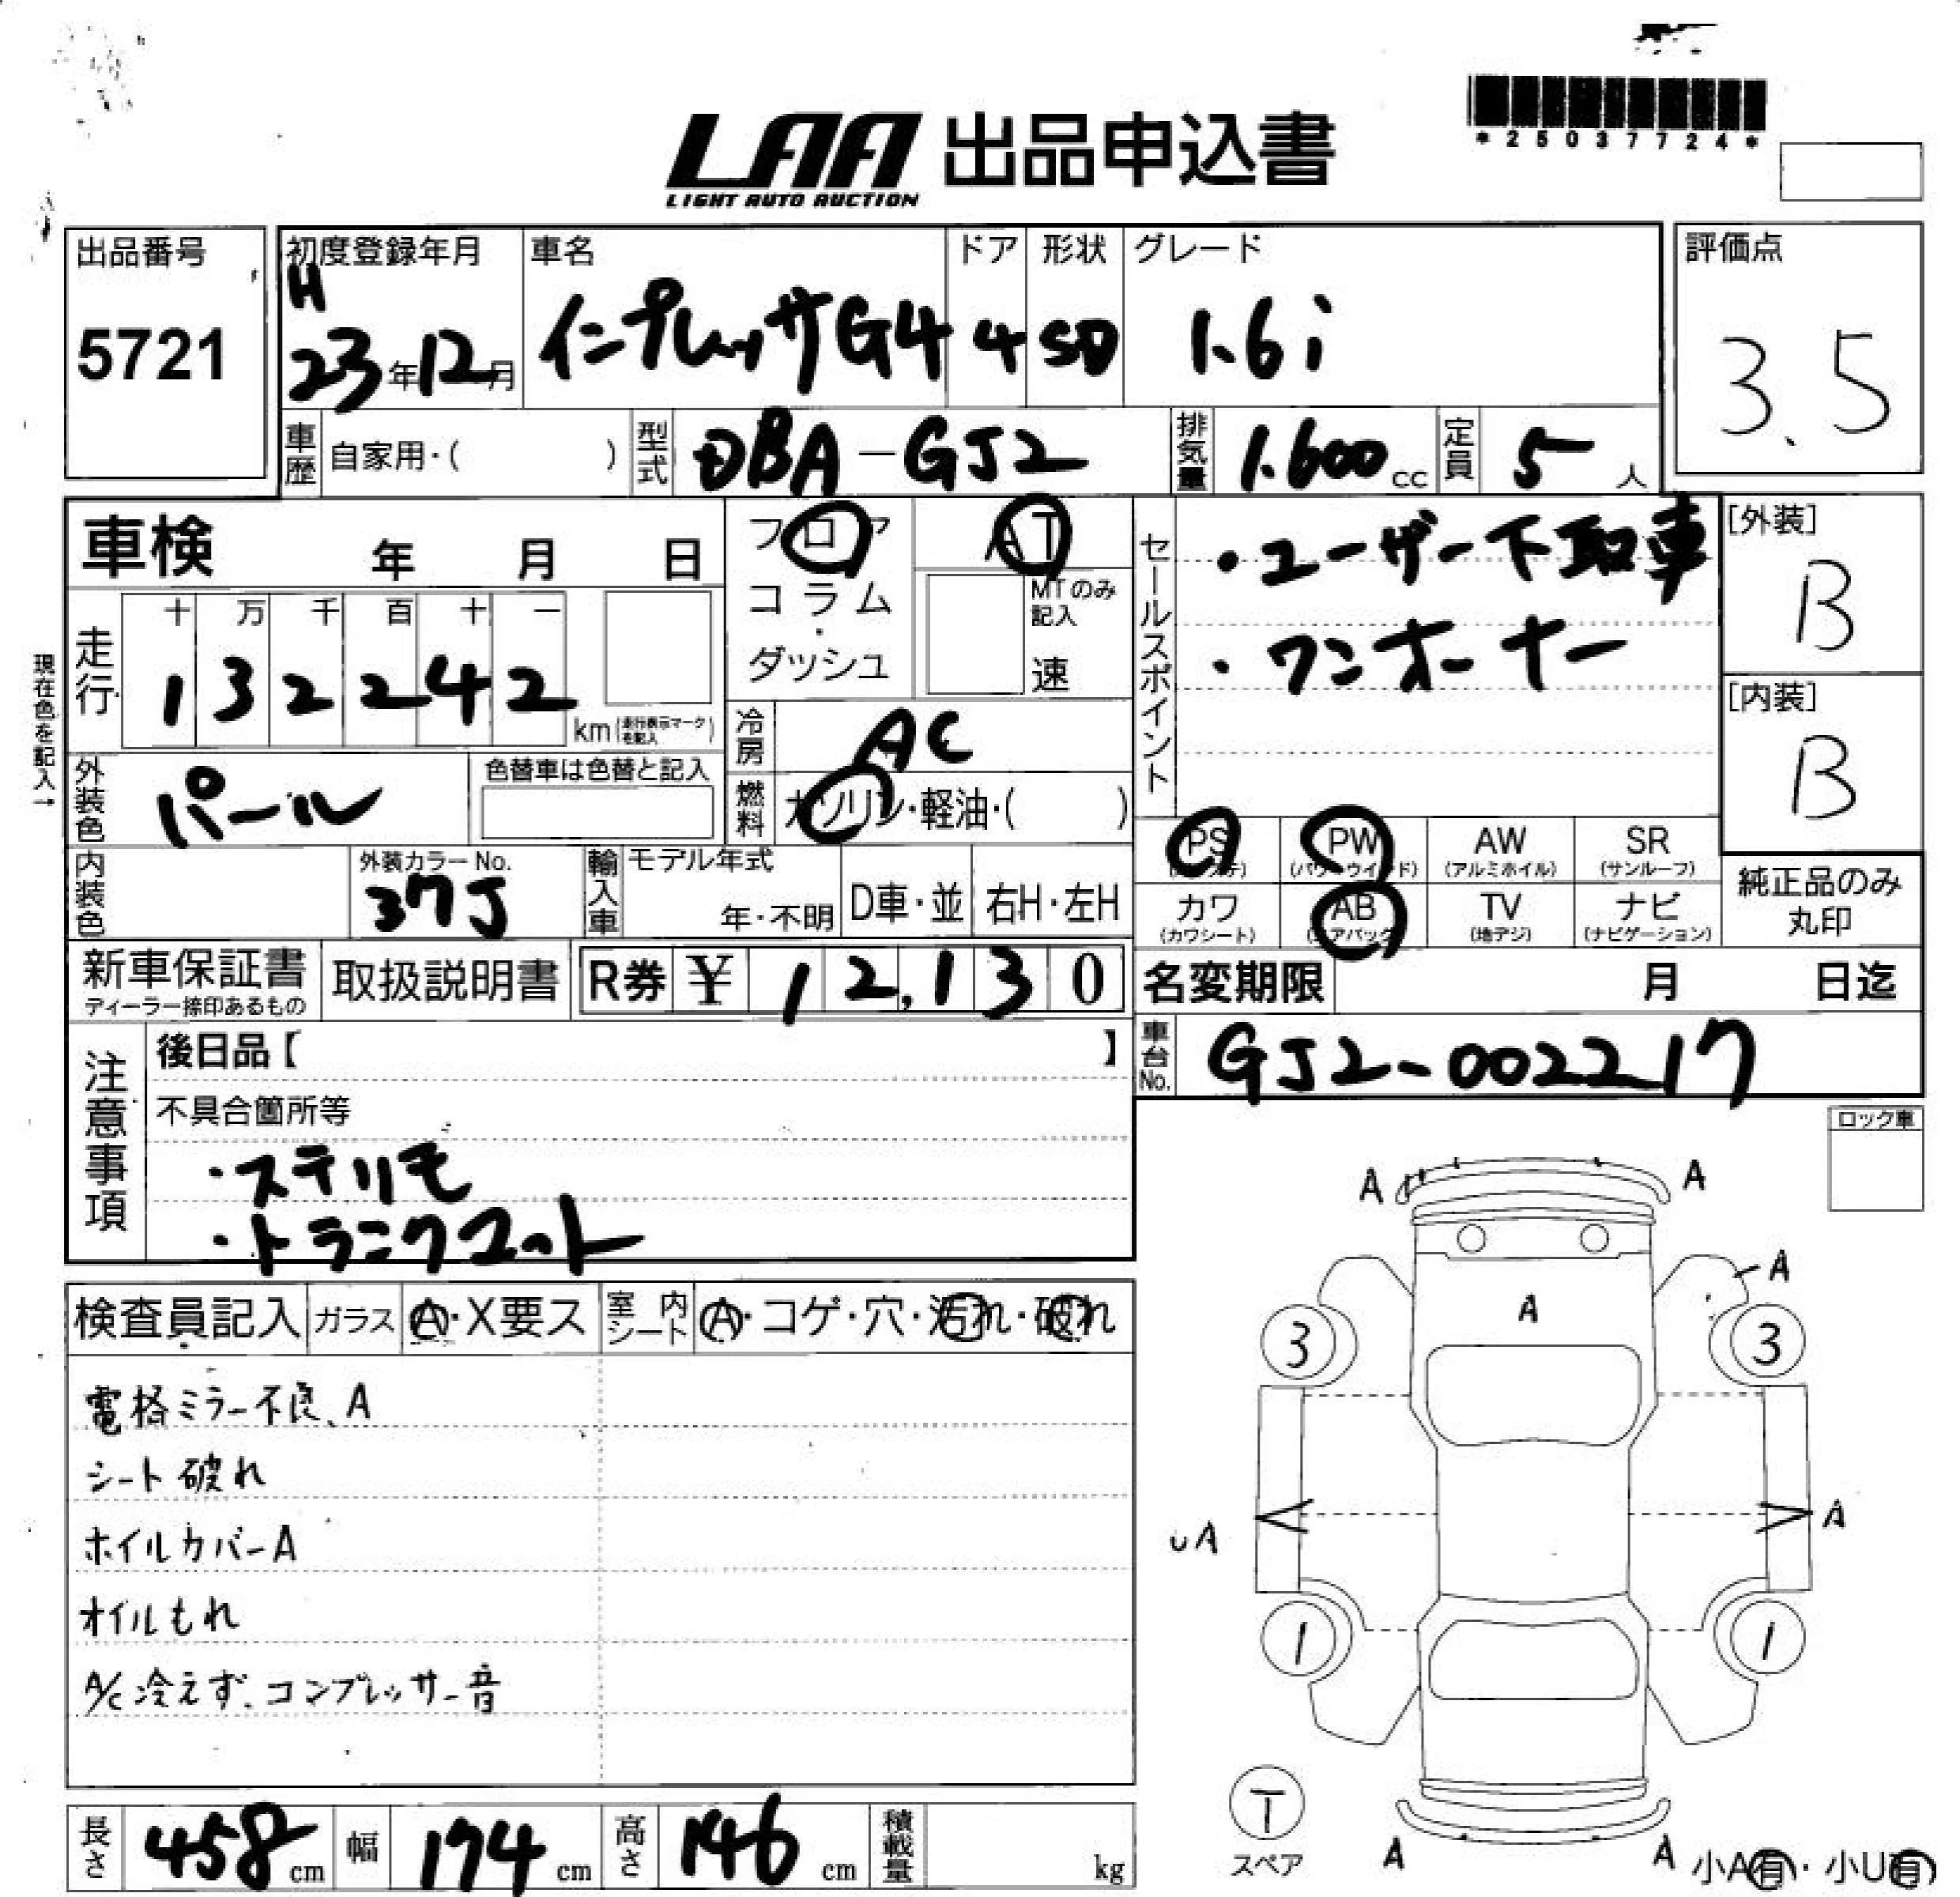 *25037724*
LAA 出品申込書
LIGHT AUTO AUCTION
出品番号
5721
初度登録年月
H
23年12月
車名
インプレッサG4
ドア
4
形状
SD
グレード
1.6i
評価点
3.5
車歴 自家用・( )
型式 DBA-GJ2
排気量 1.600cc
定員 5人
車検 年 月 日
フロア
コラム
・
ダッシュ
AT
MTのみ記入
速
セールスポイント
・ユーザー下取車
・ワンオーナー
[外装]
B
[内装]
B
現在色を記入→
走行
十 万 千 百 十 一
1 3 2 2 4 2
km(走行表示マークを記入)
冷房 AC
燃料 ガソリン・軽油・( )
外装色 パール
色替車は色替と記入
内装色
外装カラーNo.
37J
輸入車
モデル年式
年・不明
D車・並
右H・左H
PS
(パワステ)
PW
(パワーウインド)
AW
(アルミホイル)
SR
(サンルーフ)
カワ
(カワシート)
AB
(エアバック)
TV
(地デジ)
ナビ
(ナビゲーション)
純正品のみ
丸印
新車保証書
ディーラー捺印あるもの
取扱説明書
R券 ¥ 12,130
名変期限 月 日迄
車台No. GJ2-002217
注意事項
後日品【 】
不具合箇所等
・ステリモ
・トランクマット
ロック車
検査員記入
ガラス Ⓐ・X要ス
室内シート Ⓐ・コゲ・穴・汚れ・破れ
電格ミラー不良、A
シート破れ
ホイルカバーA
オイルもれ
A/C冷えず、コンプレッサー音
A
A
A
A
3
3
UA
A
1
1
T
スペア
A
A
小A有・小U有
長さ 458cm
幅 174cm
高さ 146cm
積載量 kg